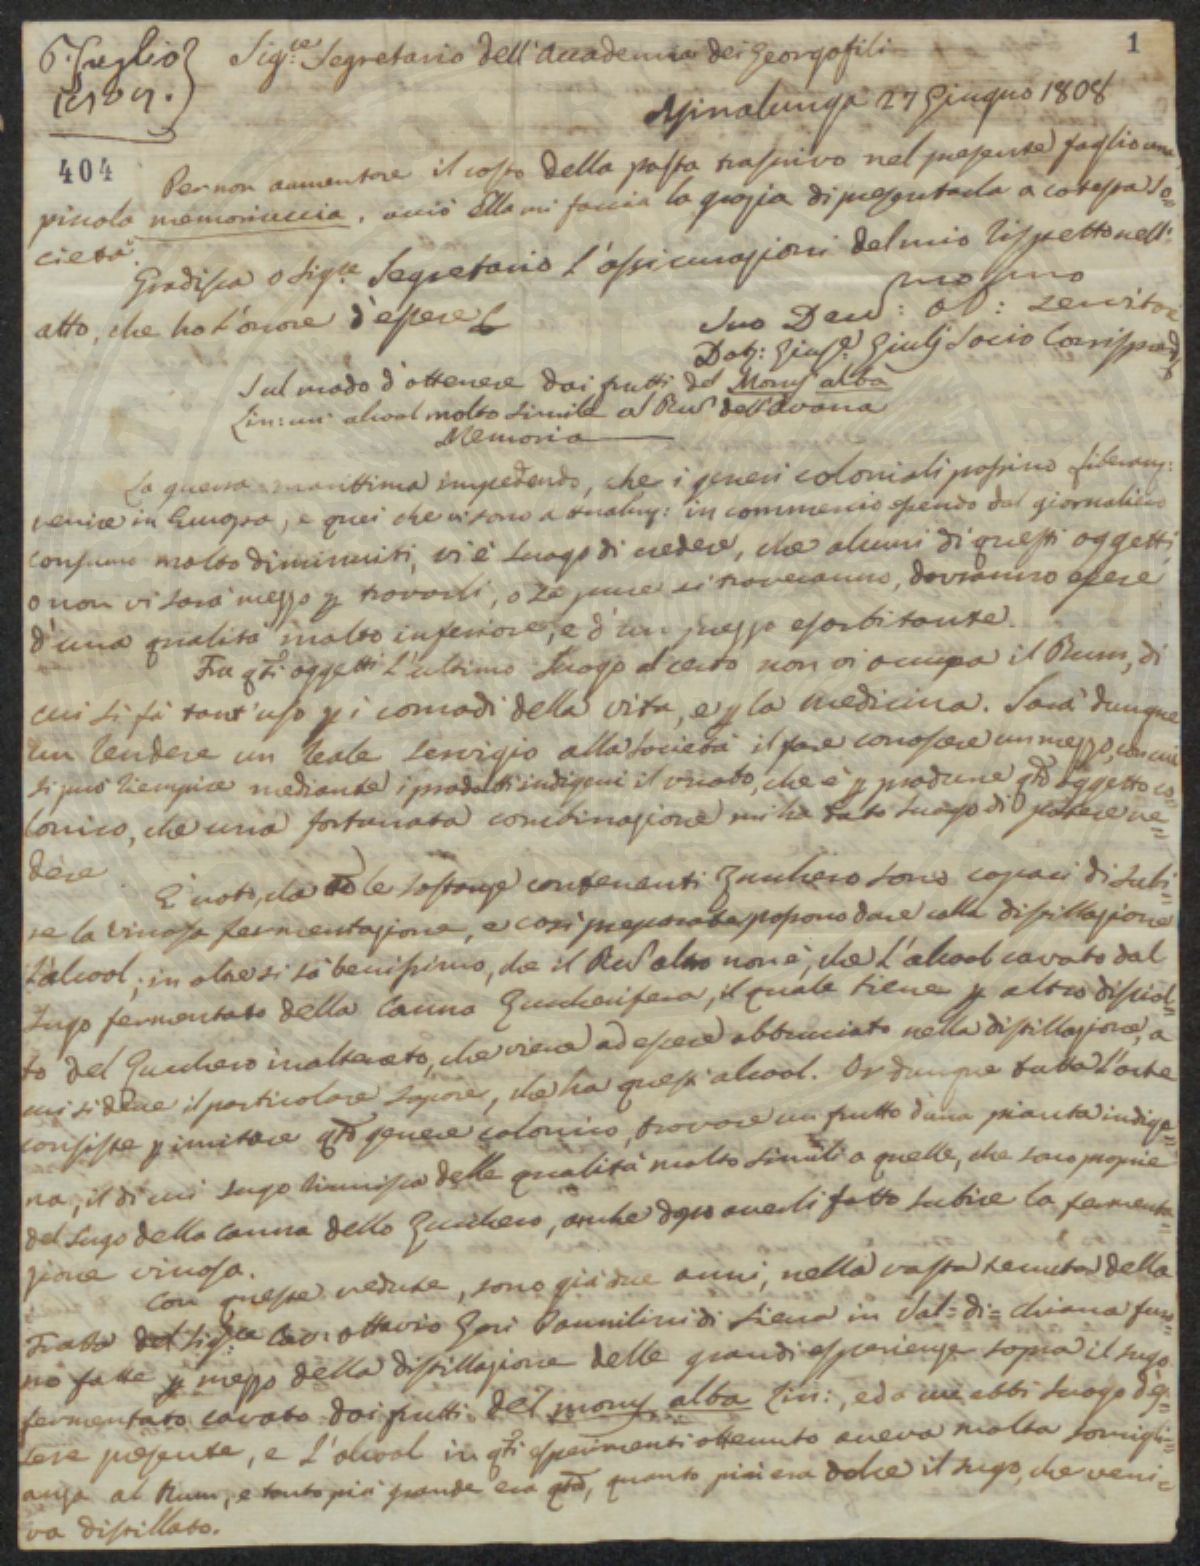 6. Luglio
1809.
1
Sig.re Segretario dell'Accademia dei Georgofili
Asinalunga 27 Giugno 1808
404
Per non aumentare il costo della posta trascrivo nel presente foglio una
piccola memoriuccia, acciò Ella mi faccia la grazia di presentarla a cotesta So=
cietà.
Gradisca o Sig.re Segretario l'assicurazioni del mio rispetto nell'
atto, che ho l'onore d'essere
Suo Dev: ob: Servitore
Dott: Gius.e Giulj Socio Corrispond.
Sul modo d'ottenere dai frutti del Morus alba
Lin: un alcool molto simile al Rum dell'Avana
Memoria
La guerra marittima impedendo, che i generi coloniali possino liberam:
venire in Europa, e quei che vi sono attualm: in commercio essendo dal giornaliero
consumo molto diminuiti, vi è luogo di credere, che alcuni di questi oggetti,
o non vi sarà mezzo p trovarli, o se pure si troveranno, dovranno essere
d'una qualità molto inferiore, e d'un prezzo esorbitante.
Fra qti oggetti l'ultimo luogo al certo non vi occupa il Rum, di
cui si fà tant'uso p i comodi della vita, e p la medicina. Sarà dunque
un rendere un reale servigio alla Società il fare conoscere un mezzo, con cui
si può riempire mediante i prodotti indigeni il vuoto, che è p produrre qto oggetto co=
lonico, che una fortunata combinazione mi ha dato luogo di potere ve=
dere
È noto, che tte le sostanze contenenti Zucchero sono capaci di subi=
re la vinosa fermentazione, e così preparate possono dare colla distillazione
l'alcool; in oltre si sà benissimo, che il Rum altro non è, che l'alcool cavato dal
sugo fermentato della Canna Zuccherifera, il quale tiene p altro disciol=
to del Zucchero inalterato, che viene ad essere abbruciato nella distillazione, a
cui si deve il particolare sapore, che ha quest'alcool. Or dunque tutta l'arte
consiste p imitare qto genere colonico, trovare un frutto d'una pianta indige=
na, il di cui sugo riunisca delle qualità molto simili a quelle, che sono proprie
del sugo della Canna dello Zucchero, anche dopo averli fatto subire la fermenta=
zione vinosa.
Con queste vedute, sono già due anni, nella vasta tenuta della
Fratta del Sig.re Cav. Ottavio Gori Pannilini di Siena in Val=di=chiana furo=
no fatte p mezzo della distillazione delle grandi esperienze sopra il sugo
fermentato cavato dai frutti del morus alba Lin:, ed a cui ebbi luogo d'es=
sere presente, e l'alcool in qti esperimenti ottenuto aveva molta somigli=
anza al Rum, e tanto più grande era qta, quanto più era dolce il sugo, che veni=
va distillato.